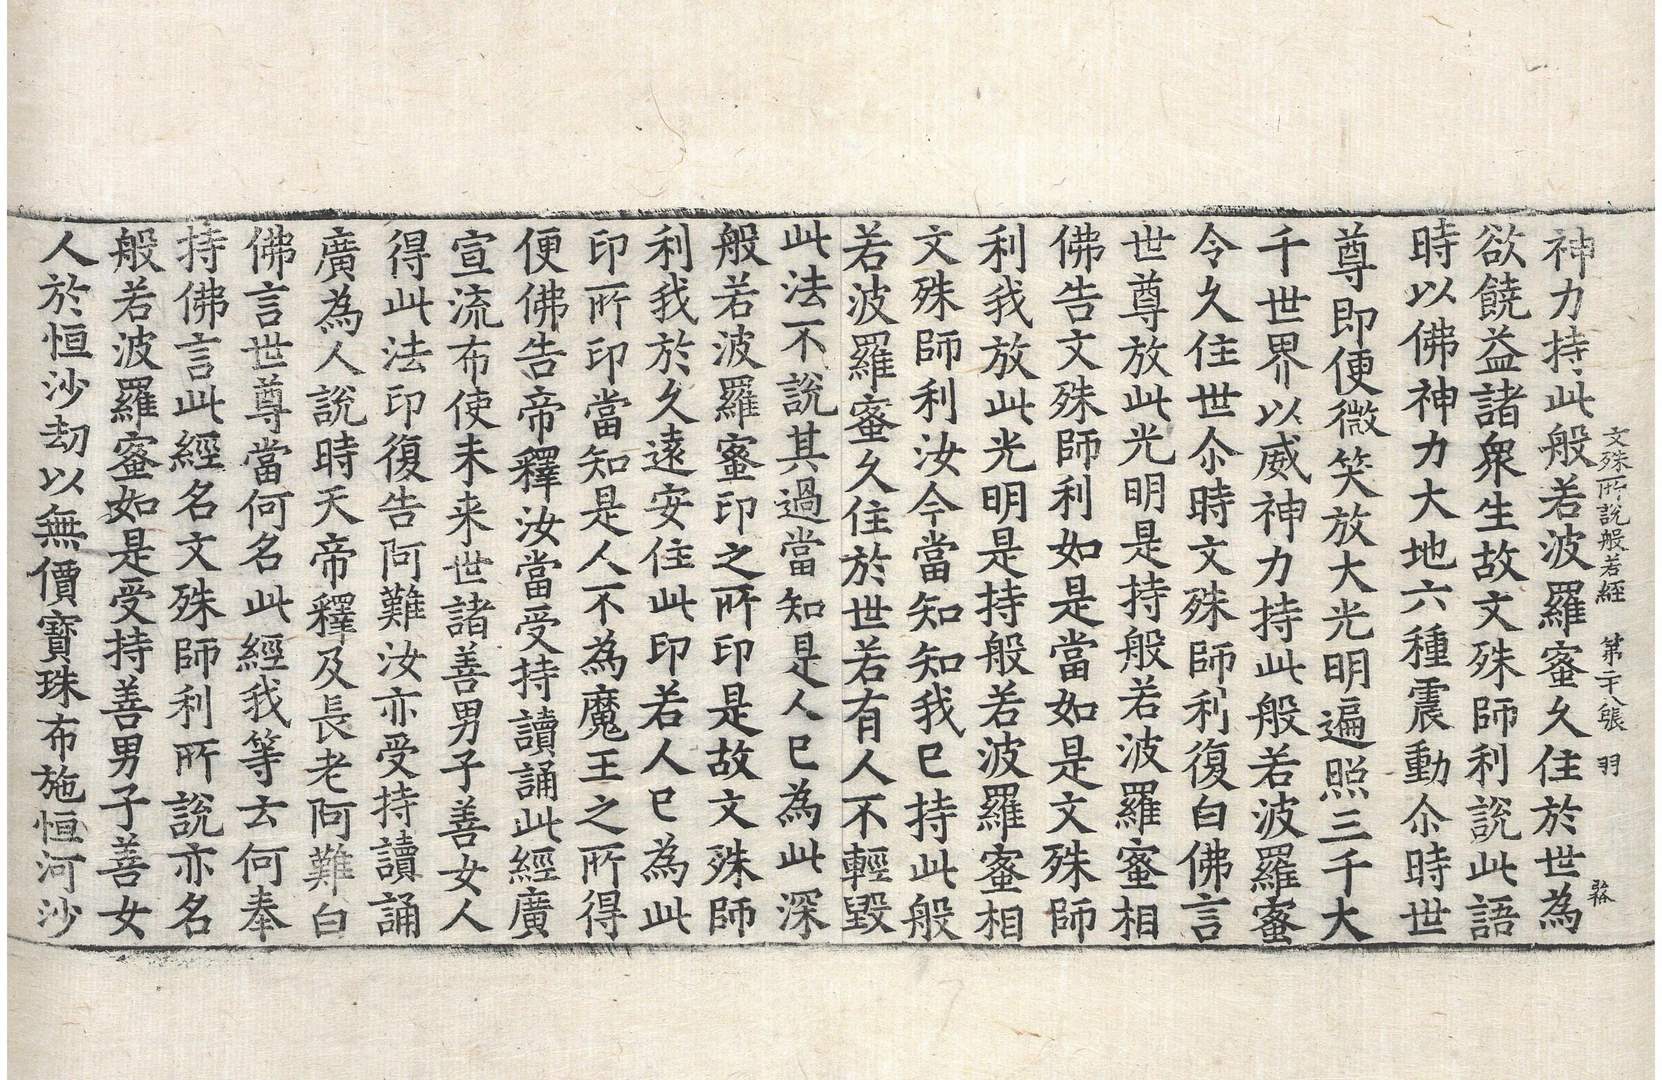 文殊所說般若經　第二十八張　羽
神力持此般若波羅蜜久住於世為
欲饒益諸衆生故文殊師利說此語
時以佛神力大地六種震動尒時世
尊即便微笑放大光明遍照三千大
千世界以威神力持此般若波羅蜜
令久住世尒時文殊師利復白佛言
世尊放此光明是持般若波羅蜜相
佛告文殊師利如是當如是文殊師
利我放此光明是持般若波羅蜜相
文殊師利汝今當知知我已持此般
若波羅蜜久住於世若有人不輕毀
此法不說其過當知是人已為此深
般若波羅蜜印之所印是故文殊師
利我於久遠安住此印若人已為此
印所印當知是人不為魔王之所得
便佛告帝釋汝當受持讀誦此經廣
宣流布使未来世諸善男子善女人
得此法印復告阿難汝亦受持讀誦
廣為人說時天帝釋及長老阿難白
佛言世尊當何名此經我等云何奉
持佛言此經名文殊師利所說亦名
般若波羅蜜如是受持善男子善女
人於恒沙劫以無價寶珠布施恒河沙